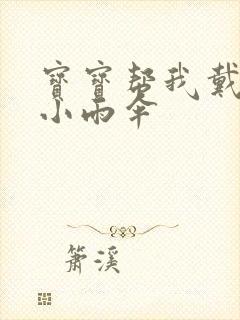 寶寶幫我戴
小雨伞
簫溪